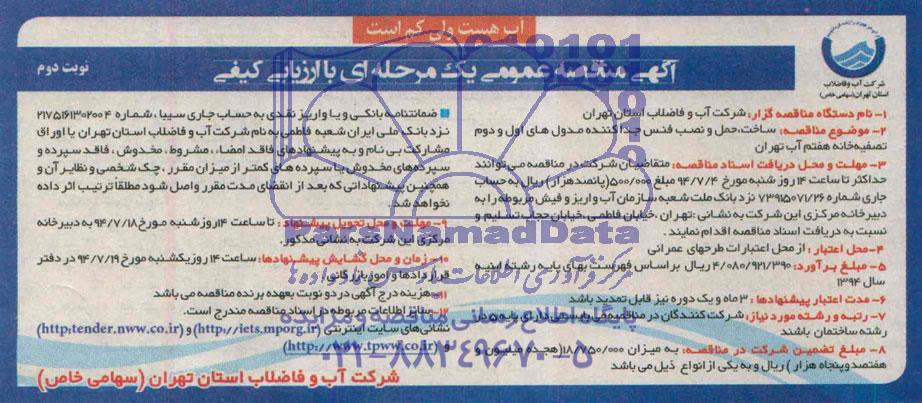 آب هست ولی کم است
آگهی مناقصه عمومی یک مرحله ای با ارزیابی کیفی
نوبت دوم
شرکت آب و فاضلاب
استان تهران (سهامی خاص)
۱- نام دستگاه مناقصه گزار: شرکت آب و فاضلاب استان تهران
۲- موضوع مناقصه: ساخت، حمل و نصب فنس جداکننده مدول های اول و دوم
تصفیه خانه هفتم آب تهران
۳- مهلت و محل دریافت اسناد مناقصه: متقاضیان شرکت در مناقصه می توانند
حداکثر تا ساعت ۱۴ روز شنبه مورخ ۹۴/۷/۴ مبلغ ۵۰۰/۰۰۰ (پانصدهزار) ریال به حساب
جاری شماره ۷۳۹۱۵۰۷۱/۲۶ نزد بانک ملت شعبه سازمان آب واریز و فیش مربوطه را به
دبیرخانه مرکزی این شرکت به نشانی: تهران، خیابان فاطمی، خیابان حجاب تسلیم و
نسبت به دریافت اسناد مناقصه اقدام نمایند.
۴- محل اعتبار: از محل اعتبارات طرحهای عمرانی
۵- مبلغ برآورد: ۴/۰۸۰/۹۲۱/۳۹۰ ریال بر اساس فهرست بهای پایه رشته ابنیه
سال ۱۳۹۴
۶- مدت اعتبار پیشنهادها: ۳ ماه و یک دوره نیز قابل تمدید باشد
۷- رتبه و رشته مورد نیاز: شرکت کنندگان در مناقصه می بایستی دارای پایه ۵ در
رشته ساختمان باشند
۸- مبلغ تضمین شرکت در مناقصه: به میزان ۱۸/۷۵۰/۰۰۰ (هجده میلیون و
هفتصد و پنجاه هزار) ریال و به یکی از انواع ذیل می باشد
ضمانتنامه بانکی و یا واریز نقدی به حساب جاری سیبا، شماره ۲۱۷۵۱۶۱۳۰۲۰۰۴
نزد بانک ملی ایران شعبه فاطمی به نام شرکت آب و فاضلاب استان تهران یا اوراق
مشارکت بی نام و به پیشنهادهای فاقد امضاء، مشروط، مخدوش، فاقد سپرده و
سپرده های مخدوش یا سپرده های کمتر از میزان مقرر، چک شخصی و نظایر آن و
همچنین پیشنهاداتی که بعد از انقضای مدت مقرر واصل شود مطلقا ترتیب اثر داده
نخواهد شد.
۹- مهلت و محل تحویل پیشنهاد: تا ساعت ۱۴ روز شنبه مورخ ۹۴/۷/۱۸ به دبیرخانه
مرکزی این شرکت به نشانی مذکور.
۱۰- زمان و محل گشایش پیشنهادها: ساعت ۱۴ روز یکشنبه مورخ ۹۴/۷/۱۹ در دفتر
قراردادها و امور بازرگانی
۱۱- هزینه درج آگهی در دو نوبت بعهده برنده مناقصه می باشد
۱۲- سایر اطلاعات مربوطه در اسناد مناقصه مندرج است.
نشانی های سایت اینترنتی (http://iets.mporg.ir) و (http:tender.nww.co.ir)
و (http://www.tpww.co.ir)
شرکت آب و فاضلاب استان تهران (سهامی خاص)
ParsNamadData
پایگاه اطلاع رسانی مناقصه و مزایده
۰۲۱-۸۸۳۴۹۶۷۰-۵